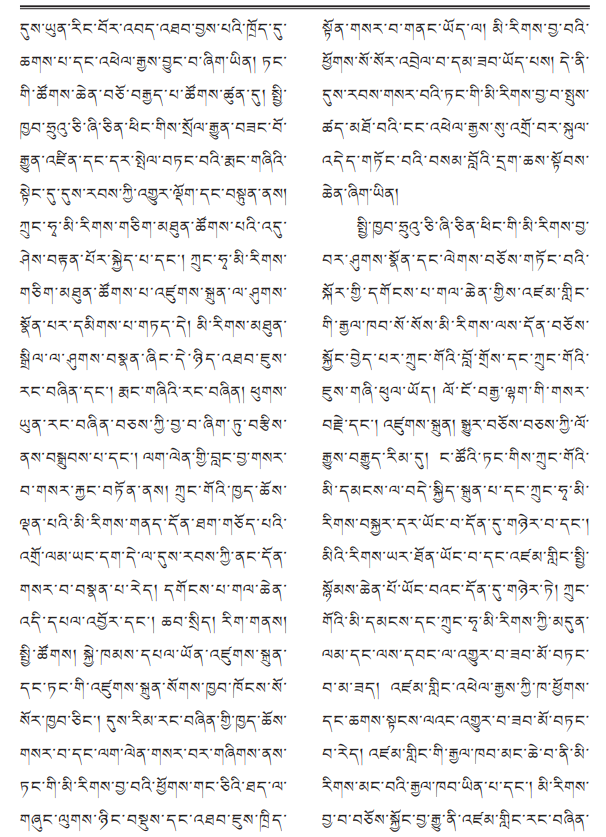 དུས་ཡུན་རིང་བོར་འབད་འཐབ་བྱས་པའི་ཁྲོད་དུ་
ཆགས་པ་དང་འཕེལ་རྒྱས་བྱུང་བ་ཞིག་ཡིན། ཏང་
གི་ཚོགས་ཆེན་བཅོ་བརྒྱད་པ་ཚོགས་ཚུན་དུ། སྤྱི་
ཁྱབ་ཧྲུའུ་ཅི་ཞི་ཅིན་ཕིང་གིས་སྲོལ་རྒྱུན་བཟང་བོ་
རྒྱུན་འཛིན་དང་དར་སྤེལ་བཏང་བའི་རྨང་གཞིའི་
སྟེང་དུ་དུས་རབས་ཀྱི་འགྱུར་ལྡོག་དང་བསྟུན་ནས།
ཀྲུང་ཧྭ་མི་རིགས་གཅིག་མཐུན་ཚོགས་པའི་འདུ་
ཤེས་བརྟན་པོར་སྐྱེད་པ་དང་། ཀྲུང་ཧྭ་མི་རིགས་
གཅིག་མཐུན་ཚོགས་པ་འཛུགས་སྐྲུན་ལ་ཤུགས་
སྣོན་པར་དམིགས་པ་གཏད་དེ། མི་རིགས་མཐུན་
སྒྲིལ་ལ་ཤུགས་བསྣན་ཞིང་དེ་ཉིད་འཐབ་ཇུས་
རང་བཞིན་དང་། རྨང་གཞིའི་རང་བཞིན། ཕུགས་
ཡུན་རང་བཞིན་བཅས་ཀྱི་བྱ་བ་ཞིག་ཏུ་བརྩིས་
ནས་བསྒྲུབས་པ་དང་། ལག་ལེན་གྱི་བླང་བྱ་གསར་
བ་གསར་རྐྱང་བཏོན་ནས། ཀྲུང་གོའི་ཁྱད་ཆོས་
ལྡན་པའི་མི་རིགས་གནད་དོན་ཐག་གཅོད་པའི་
འགྲོ་ལམ་ཡང་དག་དེ་ལ་དུས་རབས་ཀྱི་ནང་དོན་
གསར་བ་བསྣན་པ་རེད། དགོངས་པ་གལ་ཆེན་
འདི་དཔལ་འབྱོར་དང་། ཆབ་སྲིད། རིག་གནས།
སྤྱི་ཚོགས། སྐྱེ་ཁམས་དཔལ་ཡོན་འཛུགས་སྐྲུན་
དང་ཏང་གི་འཛུགས་སྐྲུན་སོགས་ཁྱབ་ཁོངས་སོ་
སོར་ཁྱབ་ཅིང་། དུས་རིམ་རང་བཞིན་གྱི་ཁྱད་ཆོས་
གསར་བ་དང་ལག་ལེན་གསར་བར་གཞིགས་ནས་
ཏང་གི་མི་རིགས་བྱ་བའི་ཕྱོགས་གང་ཅིའི་ཐད་ལ་
གཞུང་ལུགས་ཉིང་བསྡུས་དང་འཐབ་ཇུས་ཁྲིད་
སྟོན་གསར་བ་གནང་ཡོད་ལ། མི་རིགས་བྱ་བའི་
ཕྱོགས་སོ་སོར་འབྲེལ་བ་དམ་ཟབ་ཡོད་པས། དེ་ནི་
དུས་རབས་གསར་བའི་ཏང་གི་མི་རིགས་བྱ་བ་སྤུས་
ཚད་མཐོ་བའི་ངང་འཕེལ་རྒྱས་སུ་འགྲོ་བར་སྐུལ་
འདེད་གཏོང་བའི་བསམ་བློའི་དྲག་ཆས་སྟོབས་
ཆེན་ཞིག་ཡིན།
སྤྱི་ཁྱབ་ཧྲུའུ་ཅི་ཞི་ཅིན་ཕིང་གི་མི་རིགས་བྱ་
བར་ཤུགས་སྣོན་དང་ལེགས་བཅོས་གཏོང་བའི་
སྐོར་གྱི་དགོངས་པ་གལ་ཆེན་གྱིས་འཛམ་གླིང་
གི་རྒྱལ་ཁབ་སོ་སོས་མི་རིགས་ལས་དོན་བཅོས་
སྐྱོང་བྱེད་པར་ཀྲུང་གོའི་བློ་གྲོས་དང་ཀྲུང་གོའི་
ཇུས་གཞི་ཕུལ་ཡོད། ལོ་ངོ་བརྒྱ་ལྷག་གི་གསར་
བརྗེ་དང་། འཛུགས་སྐྲུན། སྒྱུར་བཅོས་བཅས་ཀྱི་ལོ་
རྒྱུས་བརྒྱུད་རིམ་དུ། ང་ཚོའི་ཏང་གིས་ཀྲུང་གོའི་
མི་དམངས་ལ་བདེ་སྐྱིད་སྐྲུན་པ་དང་ཀྲུང་ཧྭ་མི་
རིགས་བསྐྱར་དར་ཡོང་བ་དོན་དུ་གཉེར་བ་དང་།
མིའི་རིགས་ཡར་ཐོན་ཡོང་བ་དང་འཛམ་གླིང་སྤྱི་
སྙོམས་ཆེན་པོ་ཡོང་བའང་དོན་དུ་གཉེར་ཏེ། ཀྲུང་
གོའི་མི་དམངས་དང་ཀྲུང་ཧྭ་མི་རིགས་ཀྱི་མདུན་
ལམ་དང་ལས་དབང་ལ་འགྱུར་བ་ཟབ་མོ་བཏང་
བ་མ་ཟད། འཛམ་གླིང་འཕེལ་རྒྱས་ཀྱི་ཁ་ཕྱོགས་
དང་ཆགས་སྟངས་ལའང་འགྱུར་བ་ཟབ་མོ་བཏང་
བ་རེད། འཛམ་གླིང་གི་རྒྱལ་ཁབ་མང་ཆེ་བ་ནི་མི་
རིགས་མང་བའི་རྒྱལ་ཁབ་ཡིན་པ་དང་། མི་རིགས་
བྱ་བ་བཅོས་སྐྱོང་བྱ་རྒྱུ་ནི་འཛམ་གླིང་རང་བཞིན་